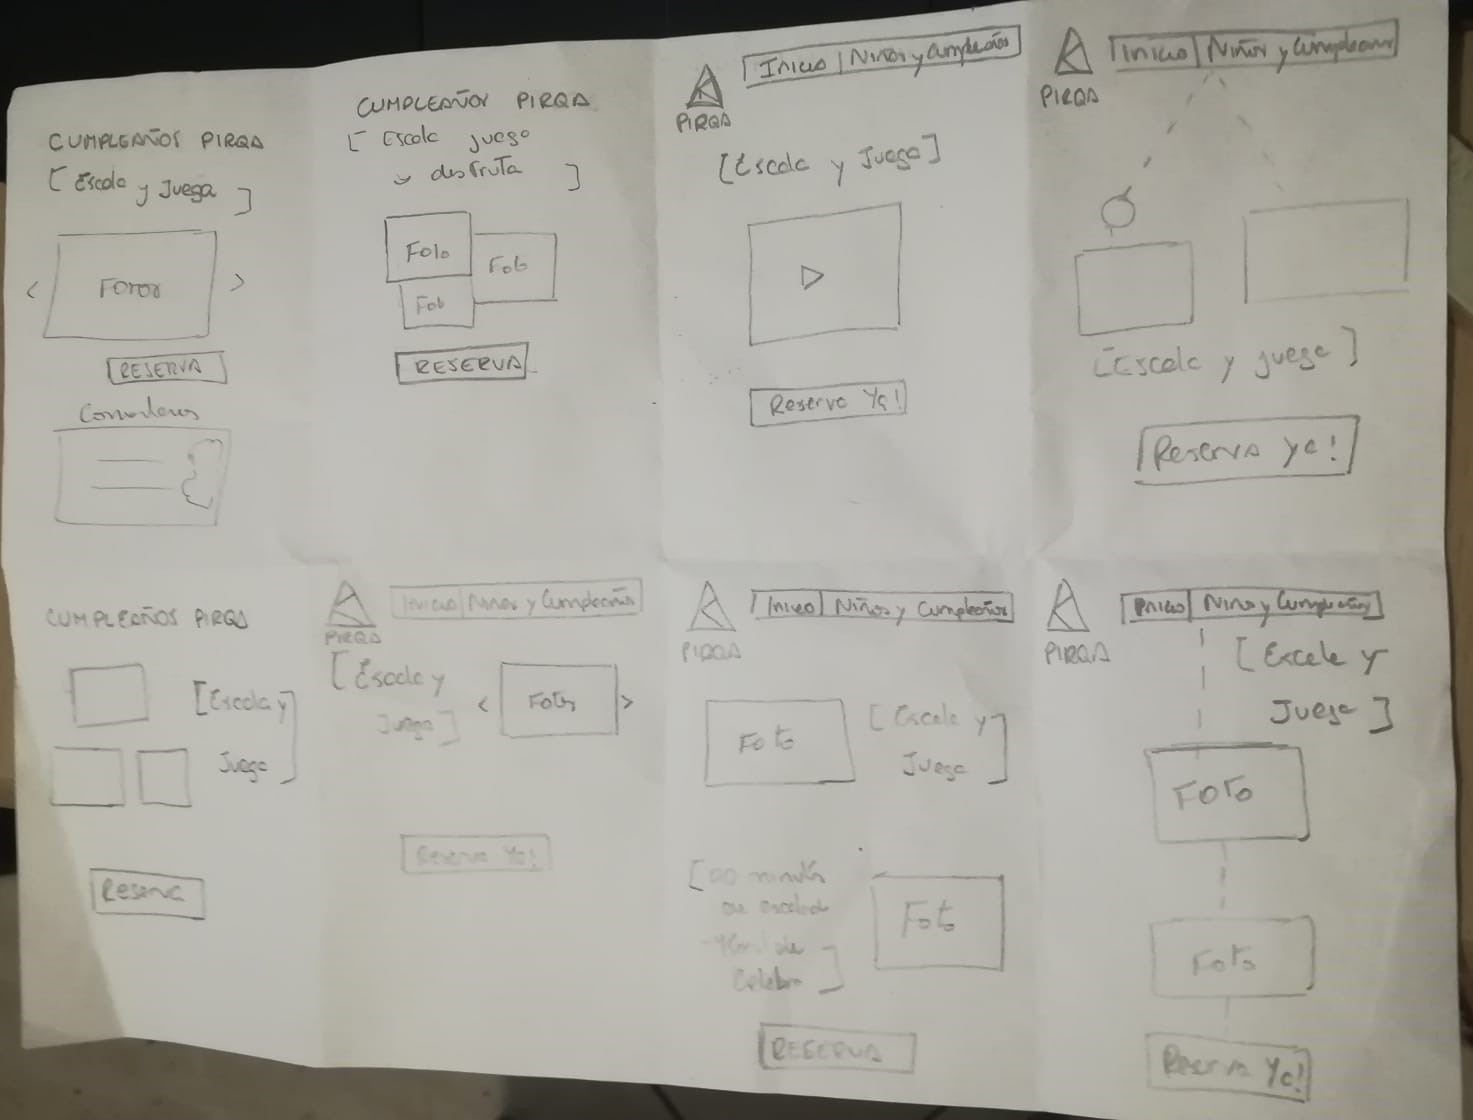 CUMPLEAÑOS PIRQA
[ Escala y Juega ]
< Fotos >
RESERVA
CUMPLEAÑOS PIRQA
[ Escala juega
y disfruta ]
Foto
Foto
Foto
RESERVA
PIRQA
Inicio | Niños y Cumpleaños
[Escala y Juega]
Reserva Ya!
PIRQA
Inicio | Niños y Cumpleaños
[Escala y juega]
Reserva ya!
CUMPLEAÑOS PIRQA
[Escala y
Juega]
Reserva
PIRQA
Inicio | Niños y Cumpleaños
[Escala y
Juega]
< Fotos >
Reserva Ya!
PIRQA
Inicio | Niños y Cumpleaños
Foto
[Escala y
Juega]
minutos
de
Foto
RESERVA
PIRQA
Inicio | Niños y Cumpleaños
[Escala y
Juega]
FOTO
Foto
Reserva Ya!